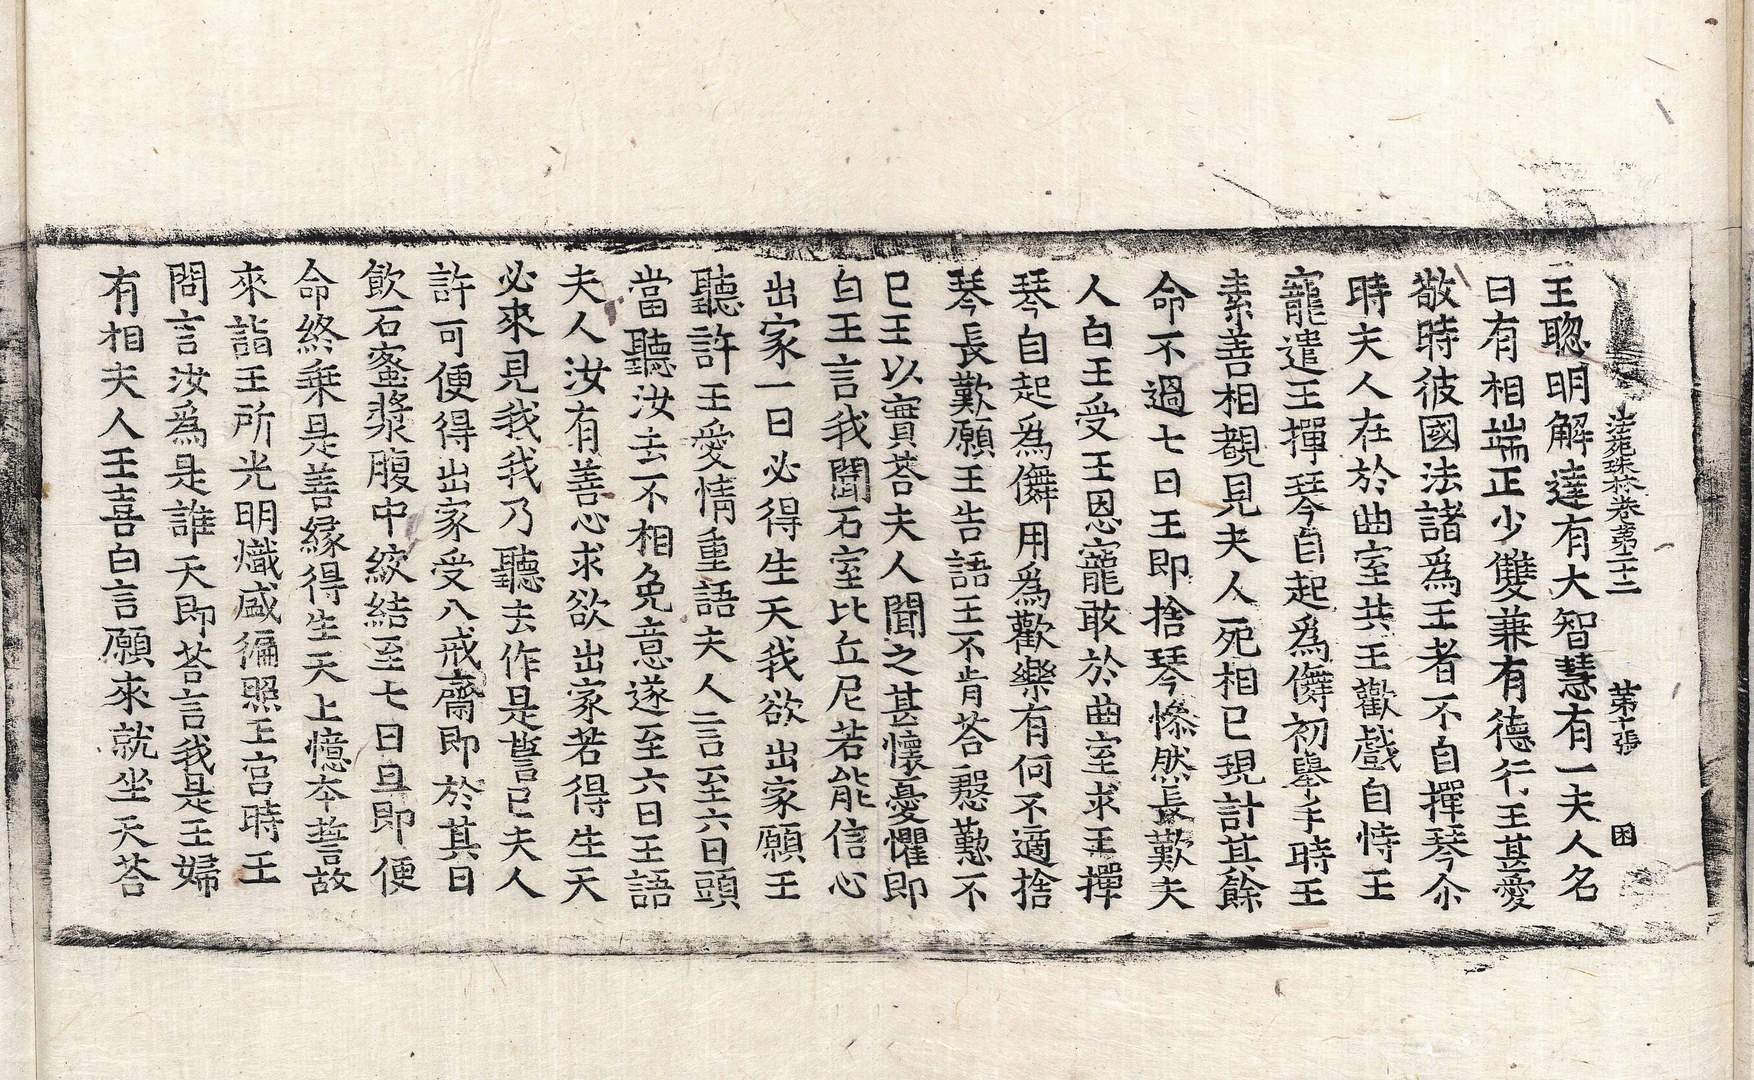 法苑珠林卷第二十二 第十張 困
王聦明解達有大智慧有一夫人名
曰有相端正少雙兼有德行王甚愛
敬時彼國法諸爲王者不自撣琴尒
時夫人在於曲室共王歡戲自恃王
寵遣王撣琴自起爲儛初舉手時王
素善相覩見夫人死相已現計其餘
命不過七日王即捨琴慘然長歎夫
人白王受王恩寵敢於曲室求王撣
琴自起爲儛用爲歡樂有何不適捨
琴長歎願王告語王不肯荅慇懃不
已王以實荅夫人聞之甚懷憂懼即
白王言我聞石室比丘尼若能信心
出家一日必得生天我欲出家願王
聽許王愛情重語夫人言至六日頭
當聽汝去不相免意遂至六日王語
夫人汝有善心求欲出家若得生天
必來見我我乃聽去作是誓已夫人
許可便得出家受八戒齋即於其日
飲石蜜漿腹中絞結至七日旦即便
命終乗是善緣得生天上憶本誓故
來詣王所光明熾盛徧照王宮時王
問言汝爲是誰天即荅言我是王婦
有相夫人王喜白言願來就坐天荅